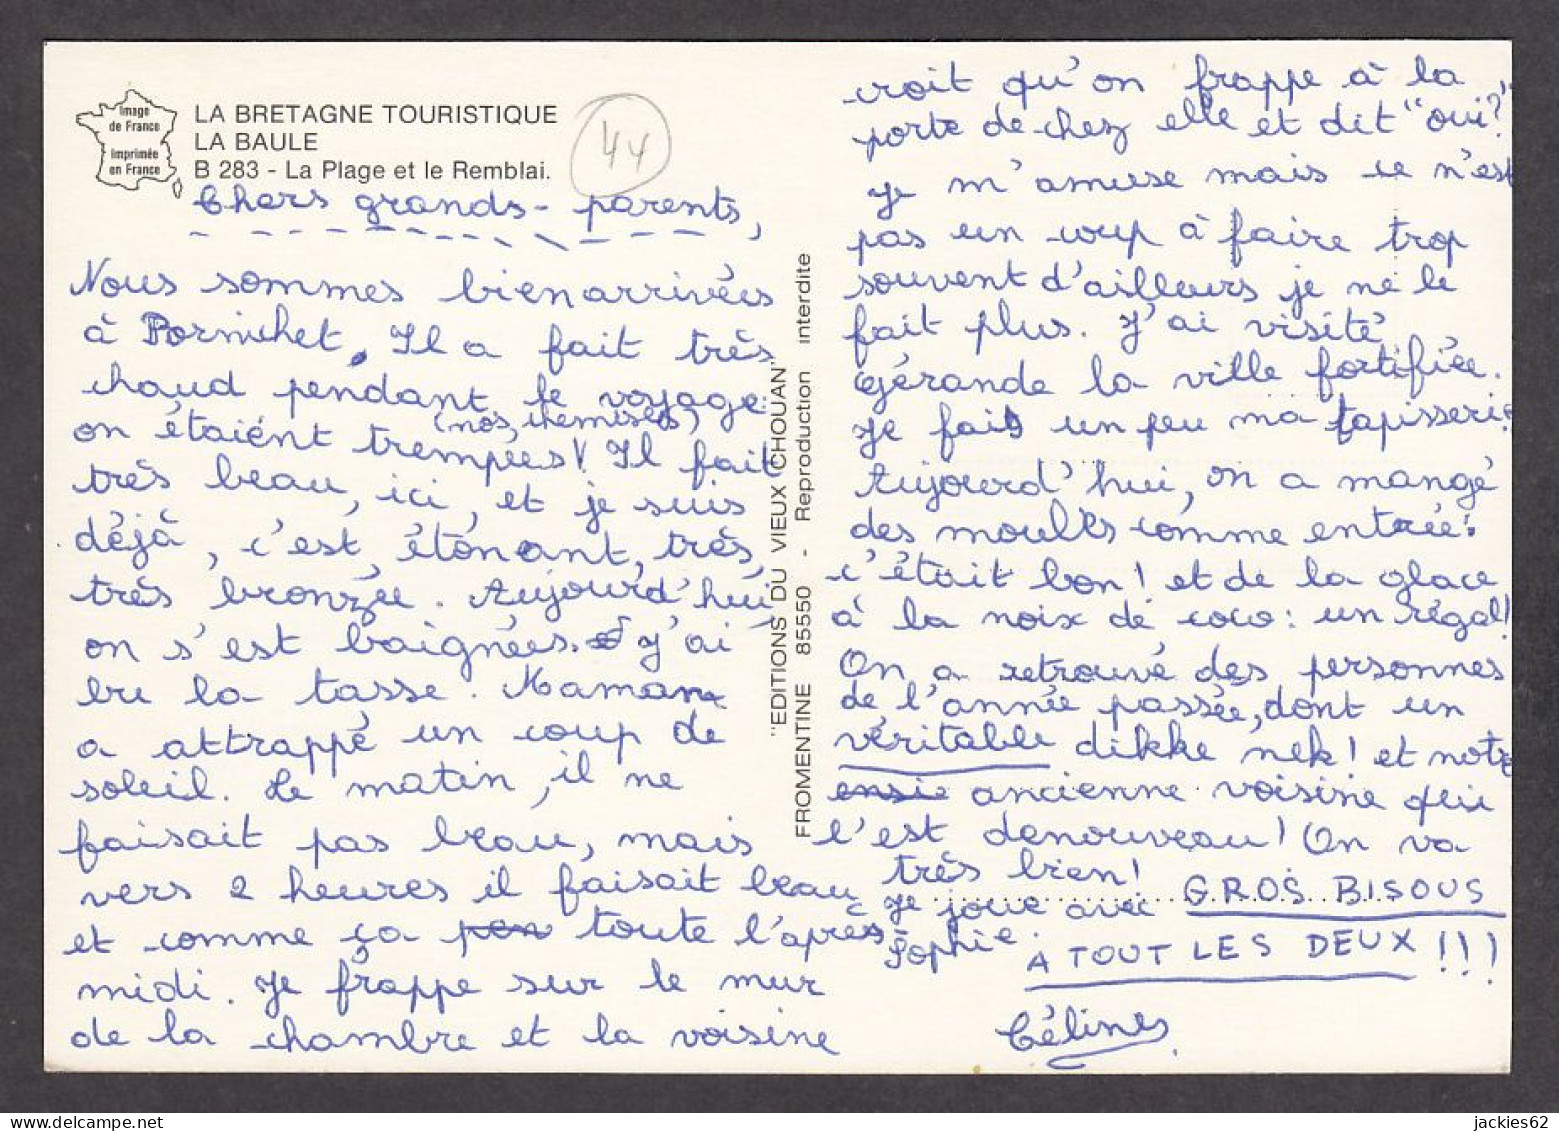 Image
de France
Imprimée
en France
LA BRETAGNE TOURISTIQUE
LA BAULE
B 283 - La Plage et le Remblai.
44
Chers grands-parents,
Nous sommes bien arrivées
à Pornichet. Il a fait très
chaud pendant le voyage:
on étaient trempées (nos chemises)! Il fait
très beau, ici, et je suis
déjà, c'est, étonant, très,
très bronzée. Aujourd'hui,
on s'est baignées. J'ai
bu la tasse. Maman
a attrappé un coup de
soleil. Le matin, il ne
faisait pas beau, mais
vers 2 heures il faisait beau
et comme ça toute l'après
midi. Je frappe sur le mur
de la chambre et la voisine
"EDITIONS DU VIEUX CHOUAN"
FROMENTINE 85550 - Reproduction interdite
croit qu'on frappe à la
porte de chez elle et dit "oui?"
Je m'amuse mais ce n'est
pas un coup à faire trop
souvent d'ailleurs je ne le
fait plus. J'ai visité
Gérande la ville fortifiée.
Je fais un peu ma tapisserie.
Aujourd'hui, on a mangé
des moules comme entrée:
c'était bon! et de la glace
à la noix de coco: un régal!
On a retrouvé des personnes
de l'année passée, dont un
véritable dikke nek! et notre
ensie ancienne voisine qui
l'est denouveau! On va
très bien!
Je joue avec
Sophie.
GROS BISOUS
A TOUT LES DEUX!!!
Céline
jackies62